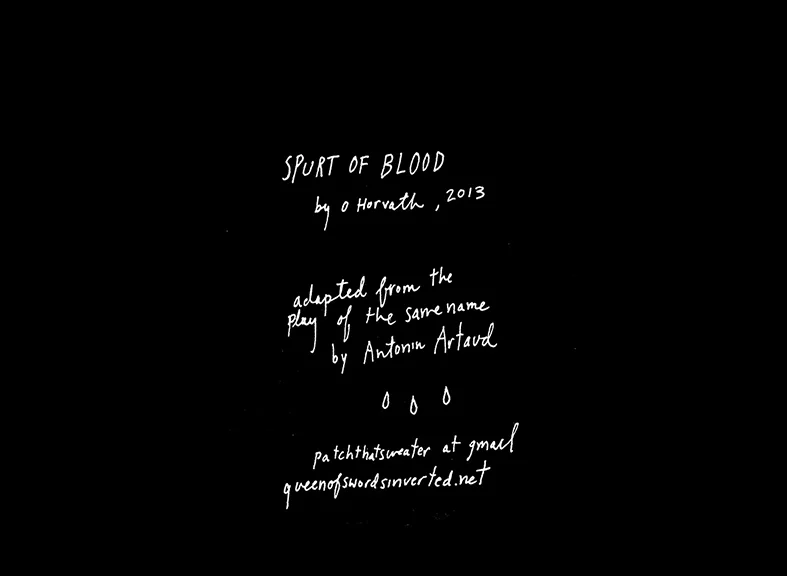 SPURT OF BLOOD
by O Horvath, 2013
adapted from the
play of the same name
by Antonin Artaud
patchthatsweater at gmail
queenofswordsinverted.net